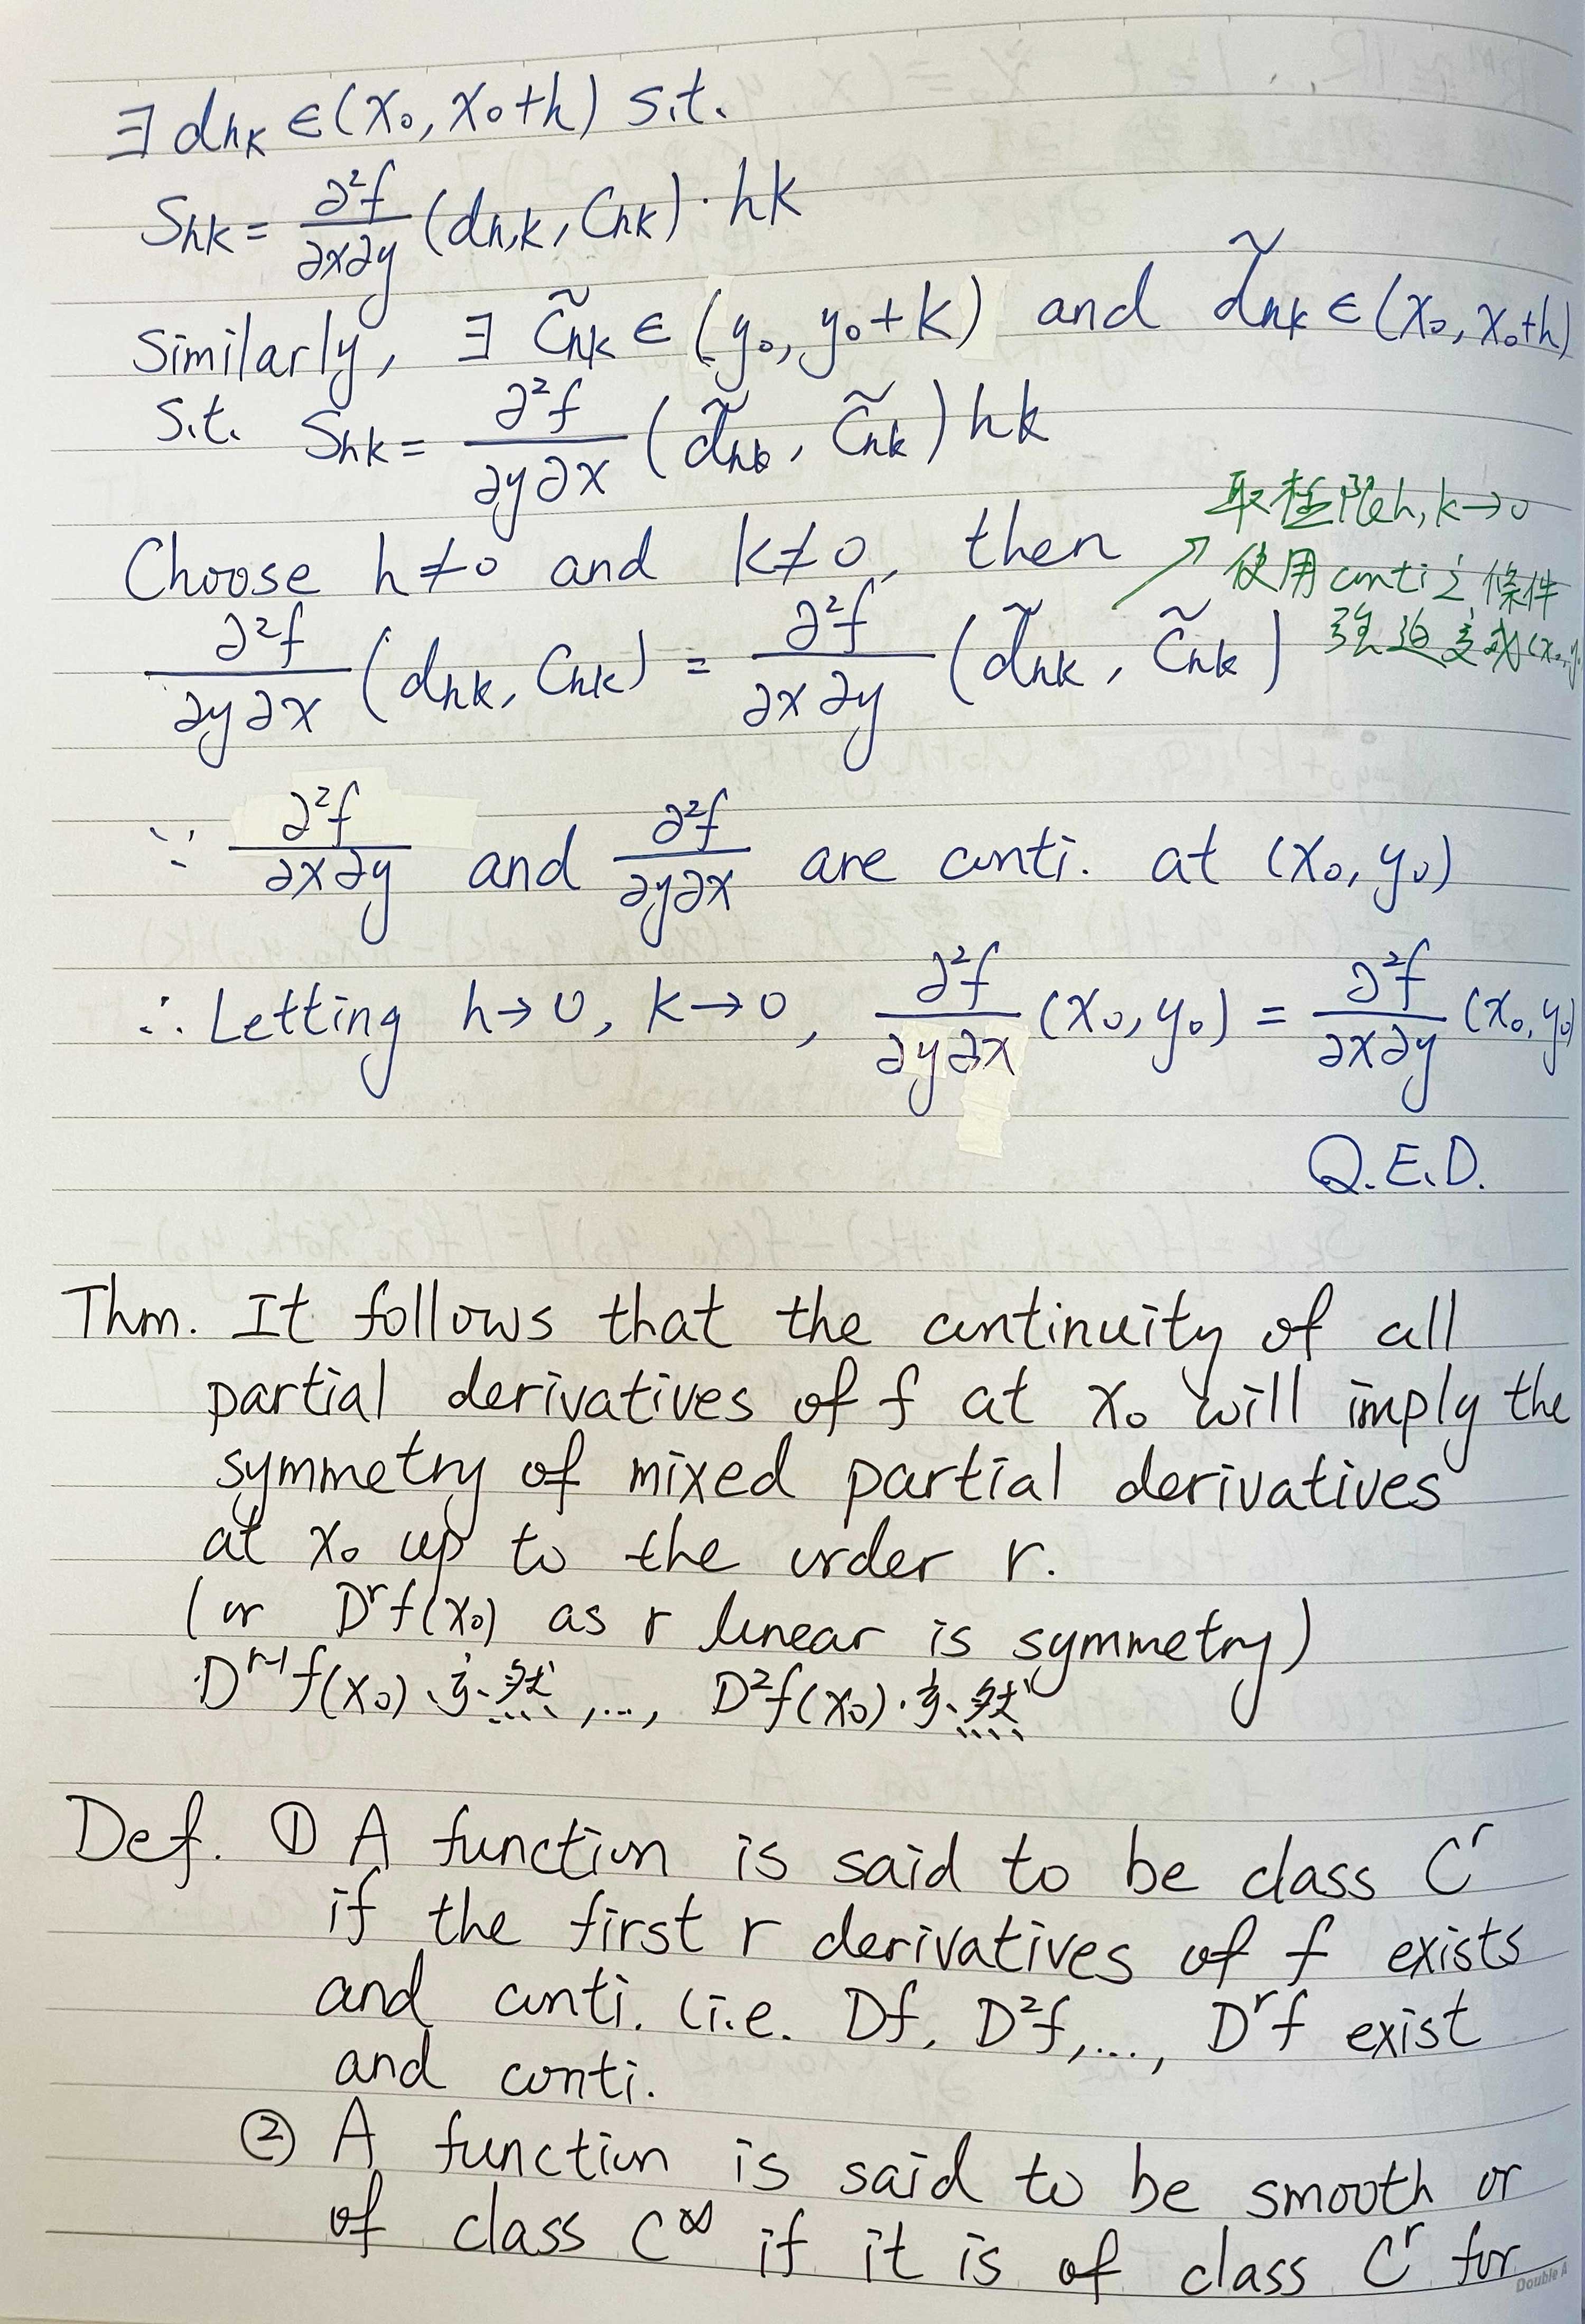 ∃ d_{hk} ∈ (x₀, x₀+h) s.t.
S_{hk} = ∂²f/∂x∂y (d_{h,k}, C_{hk}) · hk
Similarly, ∃ C̃_{hk} ∈ (y₀, y₀+k) and d̃_{hk} ∈ (x₀, x₀+h)
s.t. S_{hk} = ∂²f/∂y∂x (d̃_{hk}, C̃_{hk}) hk
取極限h, k→0
Choose h≠0 and k≠0, then
使用conti之條件
強迫變成(x₀, y₀
∂²f/∂y∂x (d_{hk}, C_{hk}) = ∂²f/∂x∂y (d̃_{hk}, C̃_{hk})
∵ ∂²f/∂x∂y and ∂²f/∂y∂x are conti. at (x₀, y₀)
∴ Letting h→0, k→0, ∂²f/∂y∂x (x₀, y₀) = ∂²f/∂x∂y (x₀, y₀)
Q.E.D.
Thm. It follows that the continuity of all
partial derivatives of f at x₀ will imply the
symmetry of mixed partial derivatives
at x₀ up to the order r.
(or Dʳf(x₀) as r linear is symmetry)
Dʳ⁻¹f(x₀)亦然, ..., D²f(x₀)亦然
Def. ① A function is said to be class Cʳ
if the first r derivatives of f exists
and conti. (i.e. Df, D²f, ..., Dʳf exist
and conti.
② A function is said to be smooth or
of class C^∞ if it is of class Cʳ for
Double A